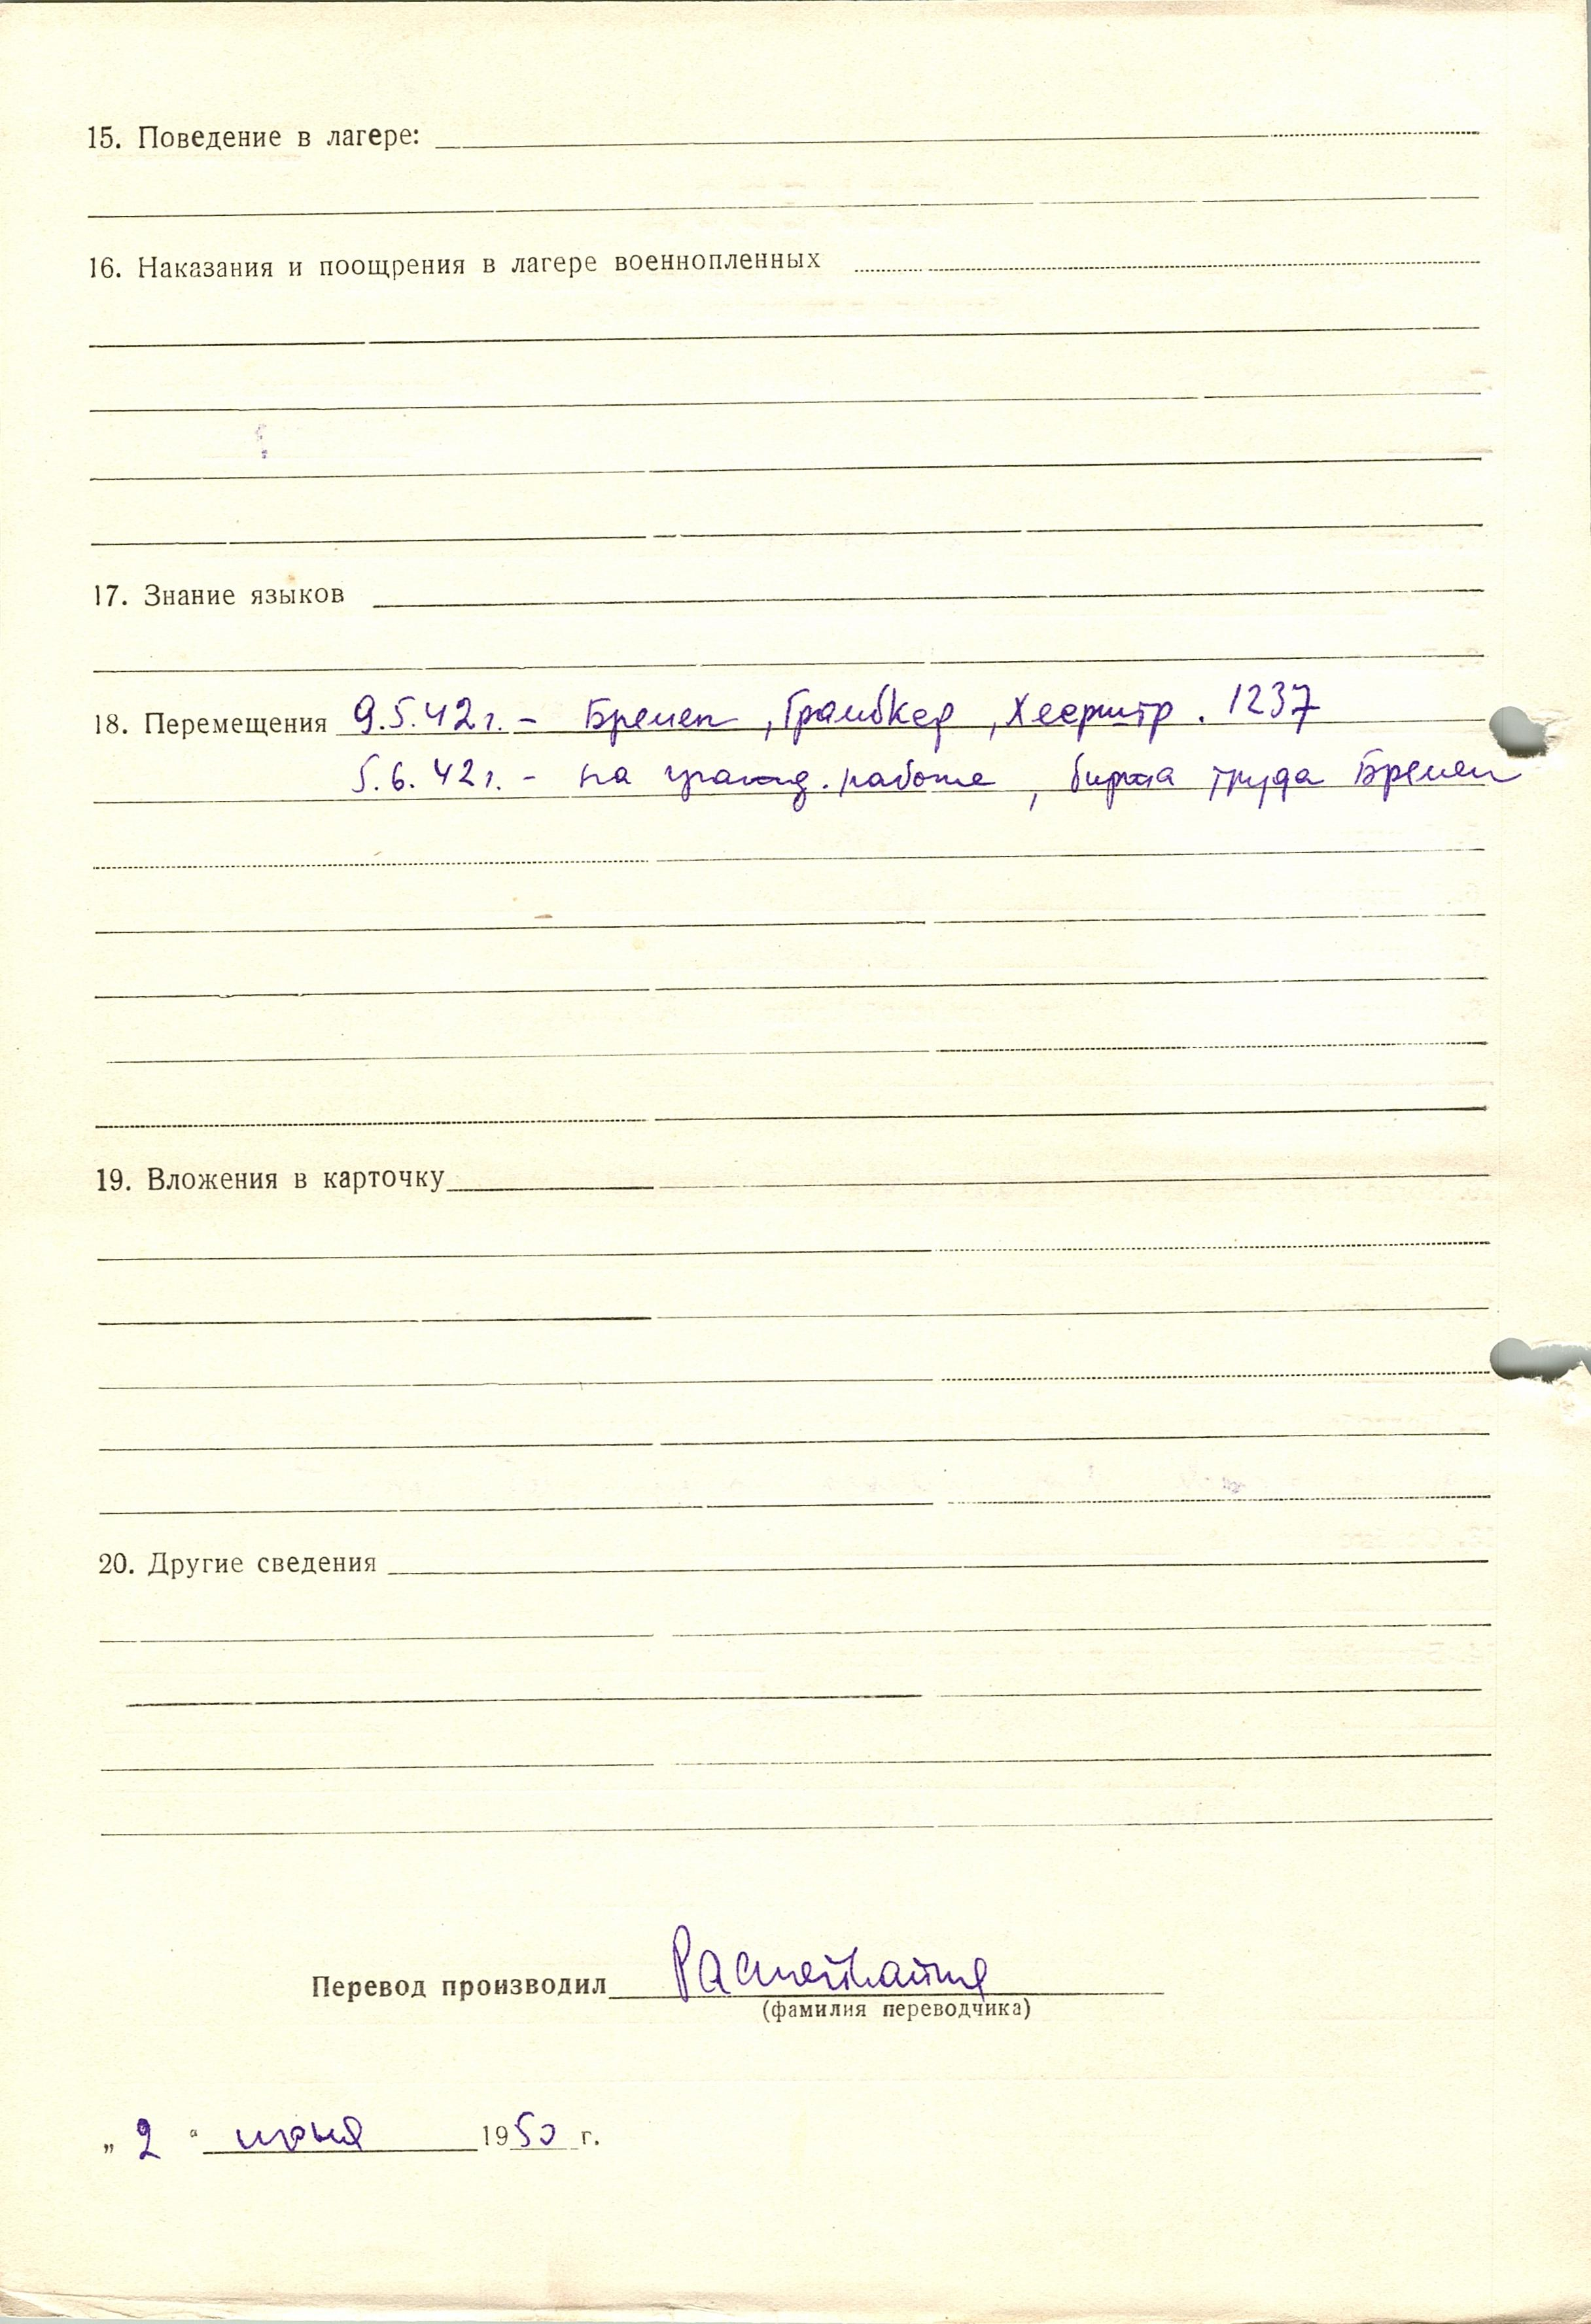 15. Поведение в лагере:
16. Наказания и поощрения в лагере военнопленных
17. Знание языков
18. Перемещения 9.5.42 г. – Бремен, Грамбкер, Хеерштр. 1237
5.6.42 г. – на гражд. работе, биржа труда Бремен
19. Вложения в карточку
20. Другие сведения
Перевод производил
(фамилия переводчика)
„2“ июня 1950 г.